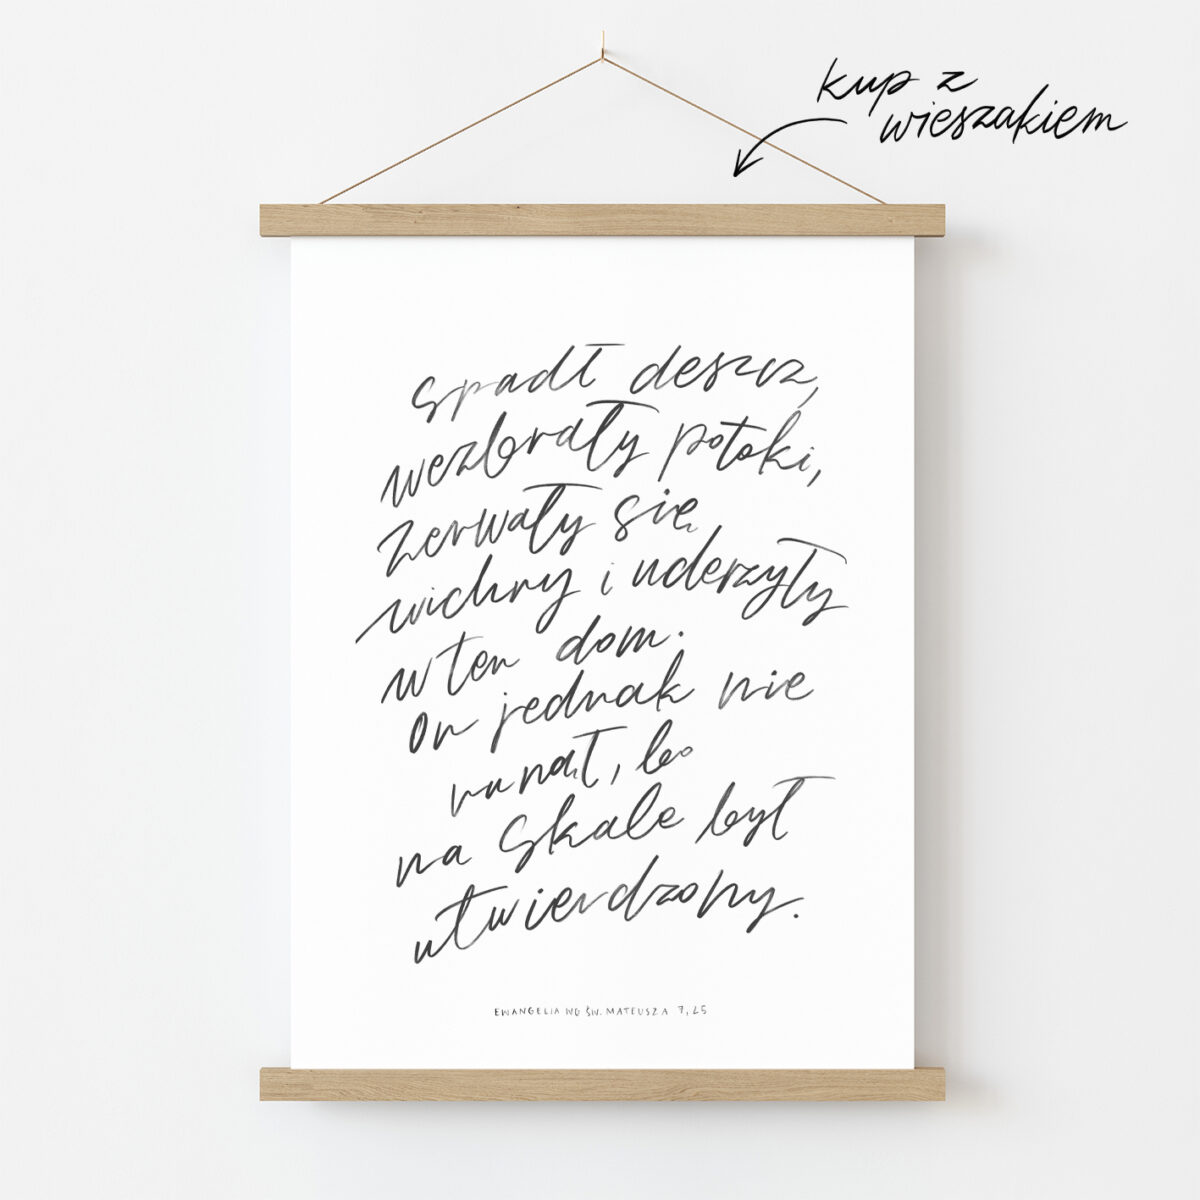 kup z
wieszakiem
Spadł deszcz,
wezbrały potoki,
zerwały się
wichry i uderzyły
w ten dom.
On jednak nie
runął, bo
na skale był
utwierdzony.
EWANGELIA WG ŚW. MATEUSZA 7, 25